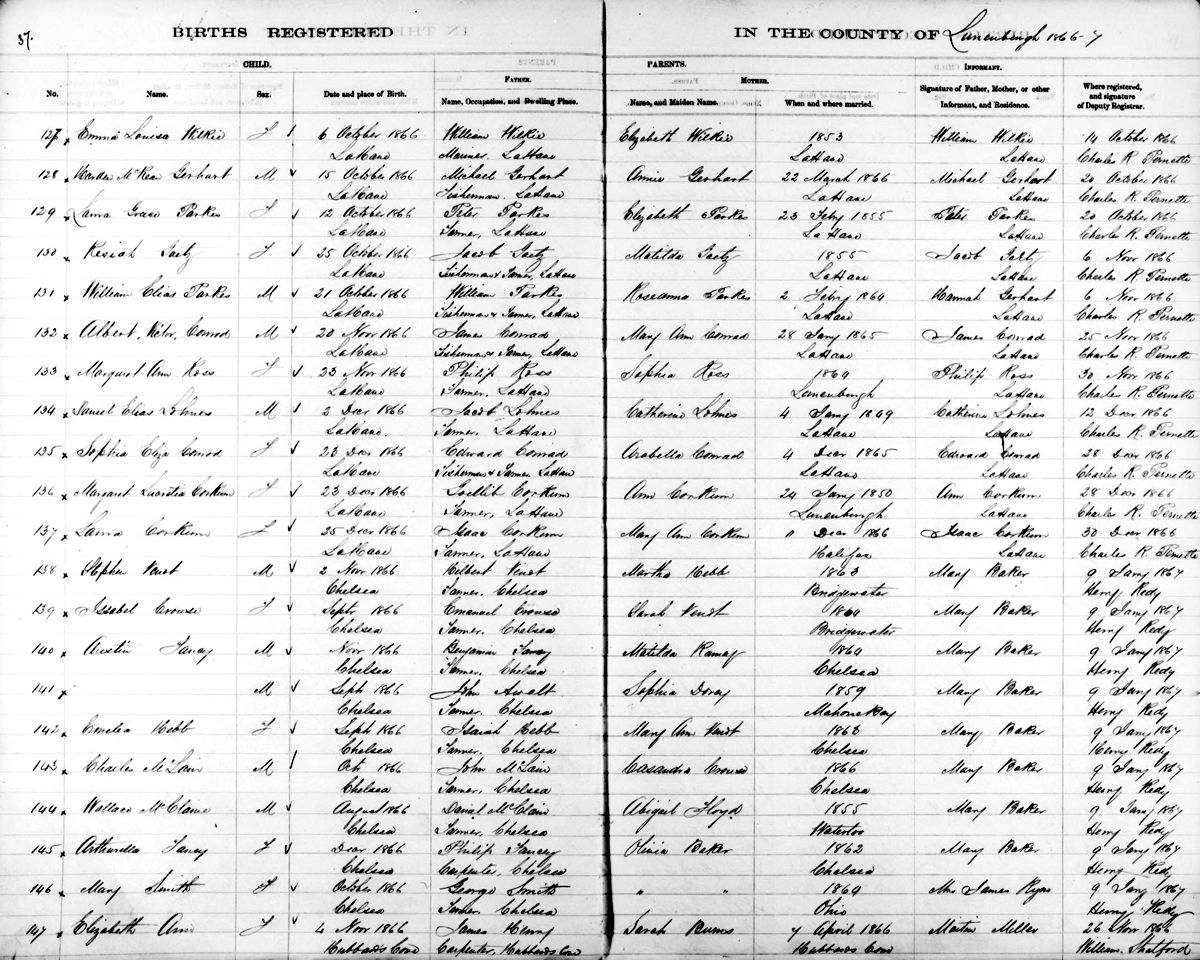 37.
BIRTHS REGISTERED IN THE COUNTY OF Lunenburgh 1866-7
CHILD. PARENTS.
FATHER. MOTHER. INFORMANT.
No. Name. Sex. Date and place of Birth. Name, Occupation, and Dwelling Place. Name, and Maiden Name. When and where married. Signature of Father, Mother, or other Informant, and Residence. Where registered, and signature of Deputy Registrar.
127 Emma Louisa Wilkie F 6 October 1866 William Wilkie Elizabeth Wilkie 1853 William Wilkie 14 October 1866
LaHave Mariner. LaHave LaHave LaHave Charles R. Pernette
128 McKean Gerhart M 15 October 1866 Michael Gerhart Annie Gerhart 22 March 1866 Michael Gerhart 20 October 1866
LaHave Fisherman. LaHave LaHave LaHave Charles R. Pernette
129 Laura Grace Parkes F 12 October 1866 Peter Parkes Elizabeth Parkes 23 Feby 1855 Peter Parkes 20 October 1866
LaHave Farmer, LaHave LaHave LaHave Charles R. Pernette
130 Kesiah Gaetz F 25 October 1866 Jacob Gaetz Matilda Gaetz 1855 Jacob Gaetz 6 Novr 1866
LaHave Fisherman & Farmer, LaHave LaHave LaHave Charles R. Pernette
131 William Elias Parkes M 21 October 1866 William Parkes Roseanna Parkes 2 Feby 1864 Hannah Gerhart 6 Novr 1866
LaHave Fisherman & Farmer, LaHave LaHave LaHave Charles R. Pernette
132 Albert, Victor, Conrad M 20 Novr 1866 James Conrad Mary Ann Conrad 28 Jany 1865 James Conrad 25 Novr 1866
LaHave Fisherman & Farmer, LaHave LaHave LaHave Charles R. Pernette
133 Margaret Ann Ross F 23 Novr 1866 Philip Ross Sophia Ross 1864 Philip Ross 30 Novr 1866
LaHave Farmer. LaHave Lunenburgh LaHave Charles R. Pernette
134 Daniel Elias Lohnes M 2 Decr 1866 Jacob Lohnes Catherine Lohnes 4 Jany 1849 Catherine Lohnes 12 Decr 1866
LaHave. Farmer. LaHave LaHave LaHave Charles R. Pernette
135 Sophia Eliza Conrad F 23 Decr 1866 Edward Conrad Arabella Conrad 4 Decr 1865 Edward Conrad 28 Decr 1866
LaHave Fisherman & Farmer LaHave LaHave LaHave Charles R. Pernette
136 Margaret Lucretia Corkum F 23 Decr 1866 Gotlib Corkum Ann Corkum 24 Jany 1850 Ann Corkum 28 Decr 1866
LaHave Farmer, LaHave Lunenburgh LaHave Charles R. Pernette
137 Laura Corkum F 25 Decr 1866 Isaac Corkum Mary Ann Corkum 11 Decr 1866 Isaac Corkum 30 Decr 1866
LaHave Farmer. LaHave Halifax LaHave Charles R. Pernette
138 Stephen Venot M 2 Novr 1866 Helbert Veinot Martha Hebb 1863 Mary Baker 9 Jany 1867
Chelsea Farmer. Chelsea Bridgewater Henry Redy
139 Issabel Crouse F Septr 1866 Emanuel Crouse Sarah Veinot 1864 Mary Baker 9 Jany 1867
Chelsea Farmer. Chelsea Bridgewater Henry Redy
140 Austin Fancy M Novr 1866 Benjamin Fancy Matilda Ramay 1864 Mary Baker 9 Jany 1867
Chelsea Farmer. Chelsea Chelsea Henry Redy
141 M Septr 1866 John Awalt Sophia Dorey 1859 Mary Baker 9 Jany 1867
Chelsea Farmer. Chelsea Mahone Bay Henry Redy
142 Emelia Hebb F Septr 1866 Isaiah Hebb Mary Ann Veinot 1863 Mary Baker 9 Jany 1867
Chelsea Farmer. Chelsea Chelsea Henry Redy
143 Charles McLain M Octr 1866 John McLain Casandra Crouse 1866 Mary Baker 9 Jany 1867
Chelsea Farmer. Chelsea Chelsea Henry Redy
144 Wallace McClaine M August 1866 Daniel McClain Abigail Floyd 1855 Mary Baker 9 Jany 1867
Chelsea Farmer, Chelsea Waterloo Henry Redy
145 Arthurella Fancy F Decr 1866 Philip Fancy Olivia Baker 1862 Mary Baker 9 Jany 1867
Chelsea Carpenter, Chelsea Chelsea Henry Redy
146 Mary Smith F October 1866 George Smith " " 1864 Mrs James 9 Jany 1867
Chelsea Farmer. Chelsea Ohio Henry Redy
147 Elizabeth Ann F 4 Novr 1866 James Henry Sarah Burns 7 April 1866 Martin Miller 26 Novr 1866
Hubbards Cove Carpenter, Hubbards Cove Hubbards Cove William Shatford